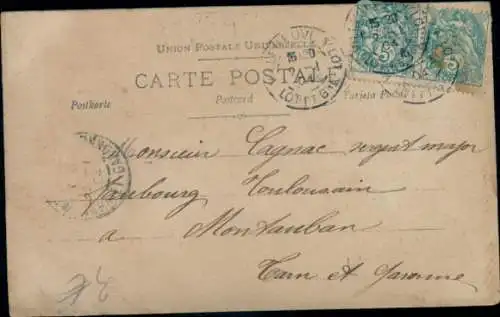 UNION POSTALE UNIVERSELLE
CARTE POSTALE
Postkarte Postcard Tarjeta Postal
Monsieur Cagnac sergent major
Faubourg Toulousain
a Montauban
Tarn et Garonne